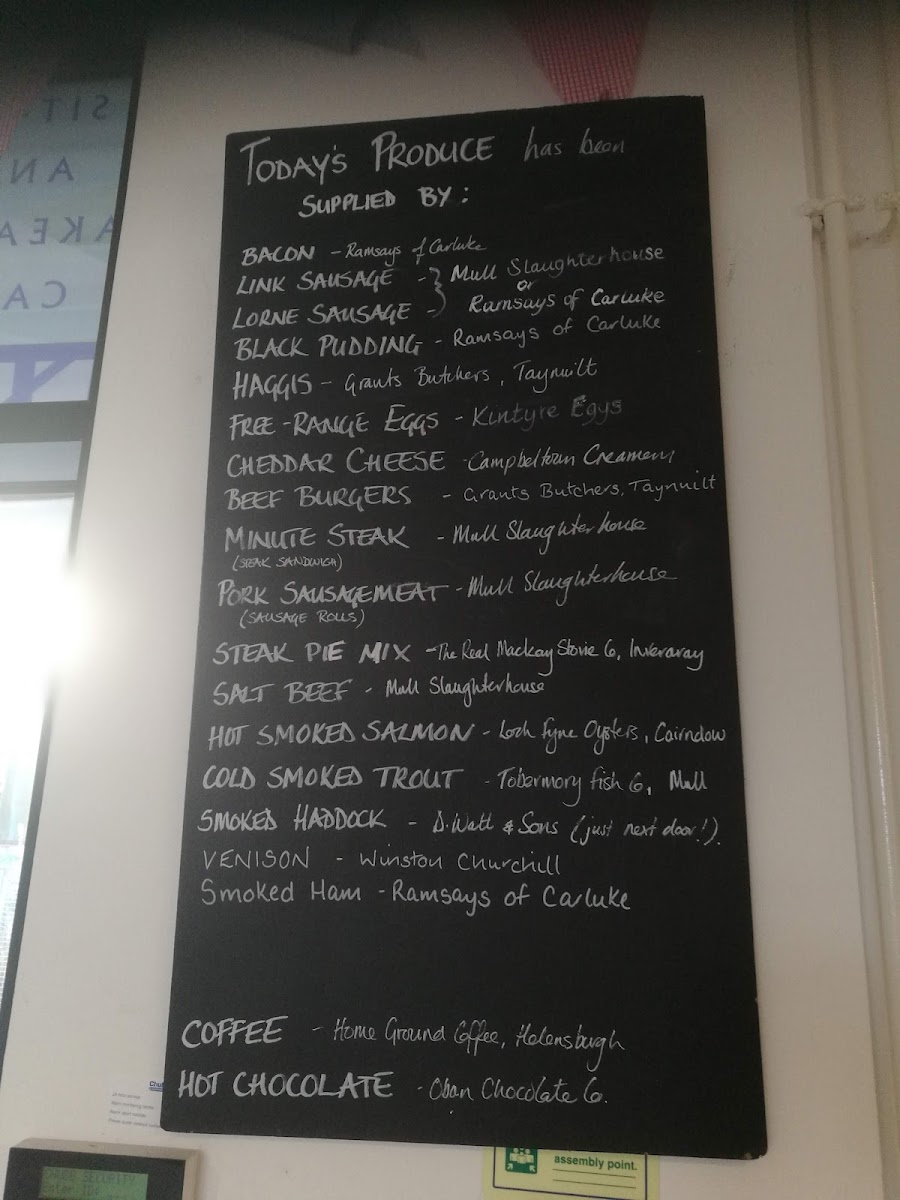 TODAY'S PRODUCE has been
SUPPLIED BY:
BACON - Ramsays of Carluke
LINK SAUSAGE - } Mull Slaughterhouse
or
LORNE SAUSAGE - Ramsays of Carluke
BLACK PUDDING - Ramsays of Carluke
HAGGIS - Grants Butchers, Taynuilt
FREE-RANGE EGGS - Kintyre Eggs
CHEDDAR CHEESE - Campbeltown Creamery
BEEF BURGERS - Grants Butchers, Taynuilt
MINUTE STEAK - Mull Slaughterhouse
(STEAK SANDWICH)
PORK SAUSAGEMEAT - Mull Slaughterhouse
(SAUSAGE ROLLS)
STEAK PIE MIX - The Real Mackay Stovie Co, Inveraray
SALT BEEF - Mull Slaughterhouse
HOT SMOKED SALMON - Loch Fyne Oysters, Cairndow
COLD SMOKED TROUT - Tobermory Fish Co, Mull
SMOKED HADDOCK - D. Watt & Sons (just next door!).
VENISON - Winston Churchill
Smoked Ham - Ramsays of Carluke
COFFEE - Home Ground Coffee, Helensburgh
HOT CHOCOLATE - Oban Chocolate Co.
SIT-
AN
AKEA
CA
Y
assembly point.